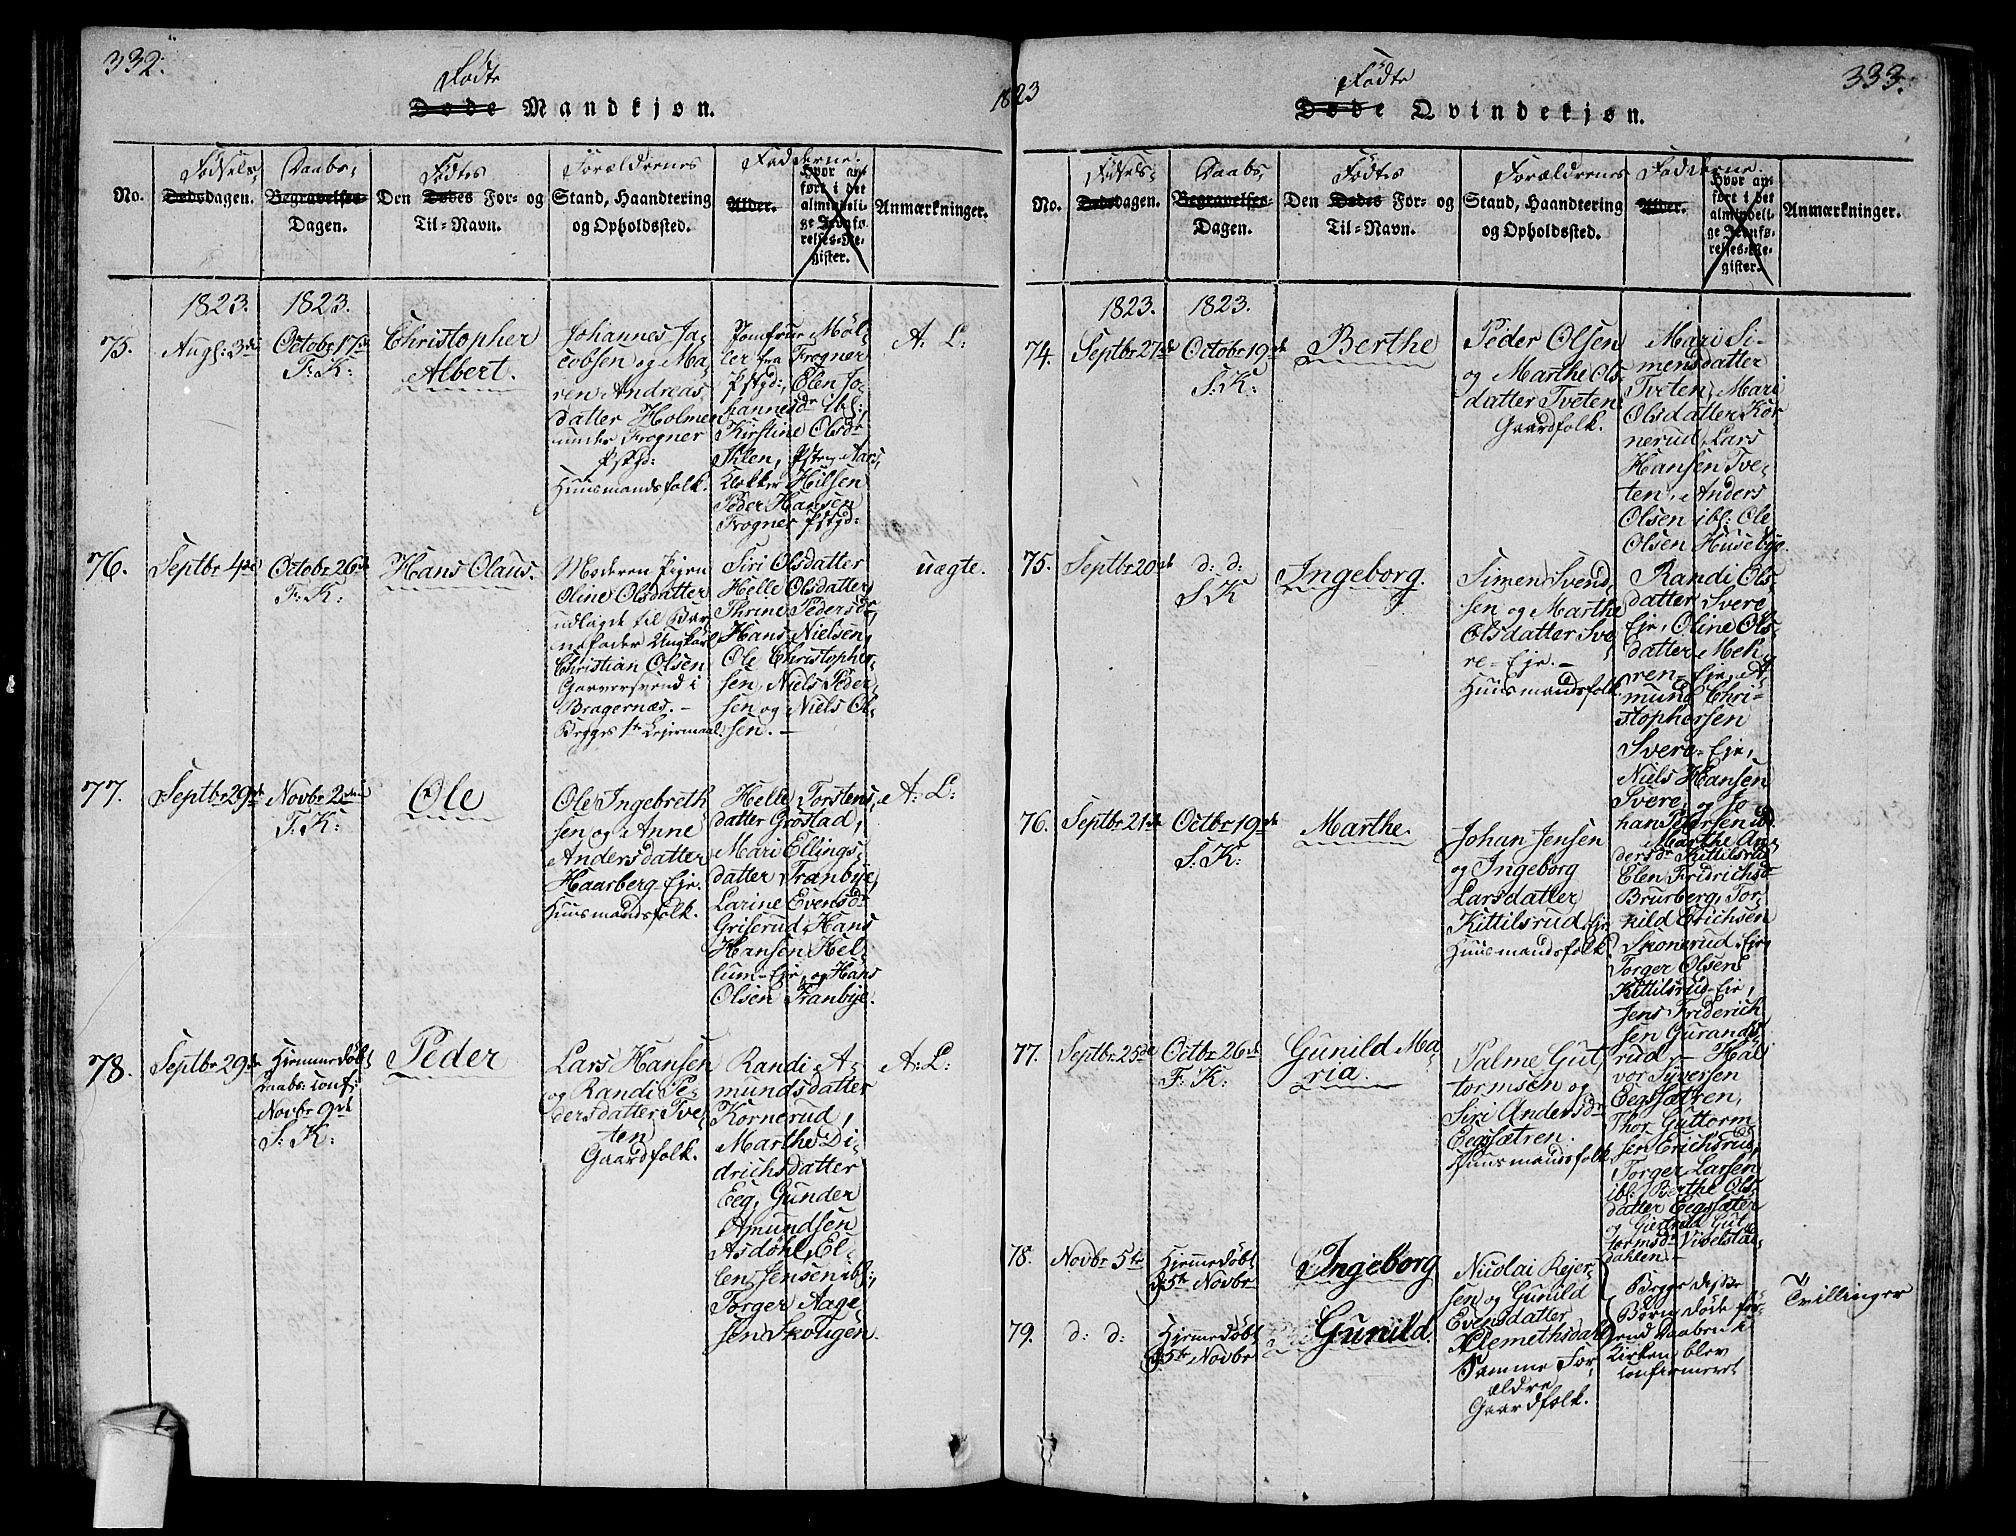 332.
Födte
Døde Mandkjøn.
1823
Fødsels,
Daabs,
Födtes
Forældrenes
Fadderne.
No.
Dødsdagen.
Begravelses-
Dagen.
Den Dødes For- og
Til-Navn.
Stand, Haandtering
og Opholdssted.
Alder.
Hvor an-
ført i det
almindeli-
ge Jevnfø-
relses-Re-
gister.
Anmærkninger.
1823.
1823.
75.
Augs: 3de
Octobr 17de
F: K:
Christopher
Albert.
Johannes Ja-
cobsen og Ma-
ren Andreas-
datter Holmen
under Frogner
Pstgd:
Huusmandsfolk.
Jomfrue Möl-
ler fra Frogner
Pstgd:, Elen Jo-
hannesdr ibl:,
Kirstine Olsdr
Ihlen, Pstgd Aars,
Klokker Hilsen
Peder Hansen
Frogner Pstgd:
A: L:
76.
Septbr 4de
Octobr 26de
F: K:
Hans Olaus.
Moderen Pigen
Oline Olsdatter
udlagde til Bar-
nefader Ungkarl
Christian Olsen
Garversvend i
Bragernæs. -
Begges 1ste Leiermaal.
Siri Olsdatter
Helle Olsdatter,
Thrine Pedersdr,
Hans Nielsen,
Ole Christopher-
sen, Niels Peder-
sen og Niels Ol-
sen. -
uægte.
77.
Septbr 29de
Novbr 2den
F: K:
Ole
Ole Ingebreth-
sen og Anne
Andersdatter
Haarberg-Eje.
Huusmandsfolk.
Helle Torstens-
datter Gröstad,
Mari Ellings-
datter Franbye,
Larine Evensdr
Griserud, Hans
Hansen Hel-
lum-Eje, og Hans
Olsen Franbye.
A: L:
78.
Septbr 29de
Hjemmedöbt
Daabs: conf:
Novbr 9de
S: K:
Peder
Lars Hansen
og Randi Pe-
dersdatter Tve-
ten
Gaardfolk.
Randi A-
mundsdatter
Kornerud,
Marthe Di-
drichsdatter
Eeg, Gunder
Amundsen
Asdöhl, El-
len Jensen ibl:,
Torger Aage-
sen Skougen.
A: L:
333.
Födte
Døde Qvindekjøn.
Födsels,
Daabs,
Födtes
Forældrenes
Fadderne.
No.
Dødsdagen.
Begravelses-
Dagen.
Den Dødes For- og
Til-Navn.
Stand, Haandtering
og Opholdssted.
Alder.
Hvor an-
ført i det
almindeli-
ge Jevnfø-
relses-Re-
gister.
Anmærkninger.
1823.
1823.
74.
Septbr 27de
Octobr 19de
S: K:
Berthe
Peder Olsen
og Marthe Ols-
datter Tveten
Gaardfolk.
Mari Si-
mensdatter
Tveten, Mari
Olsdatter Kor-
nerud, Lars
Hansen Tve-
ten, Anders
Olsen ibl: Ole
Olsen Husebye.
75.
Septbr 20de
d: d:
S: K
Ingeborg.
Simen Svend-
sen og Marthe
Olsdatter Sve-
re-Eje. -
Huusmandsfolk.
Randi Ols-
datter Svere
Eje, Oline Ols-
datter Meh-
ren-Eje, A-
mund Chri-
stophersen
Svere-Eje,
Niels Hansen
Svere, og Jo-
han Pedersen ibl
76.
Septbr 21de
Octbr 19de
S: K:
Marthe.
Johan Jensen
og Ingeborg
Larsdatter
Kittilsrud Eje
Huusmandsfolk.
Marthe An-
dersdr Kittilsrud
Elen Fridrichsdr
Brurberg, Tor-
kild Erichsen
Skonerud-Eje,
Torger Olsen
Kittilsrud-Eje,
Jens Friderich-
sen Gurands-
rud -
77.
Septbr 25de
Octbr 26de
F: K:
Gunild Ma-
ria.
Palme Gut-
tormsen og
Siri Andersdr
Eegsætren.
Huusmandsfolk
Hal-
vor Syversen
Eegsætren,
Thor Guttorm-
sen Erichsrud,
Torger Larsen
ibl:, Berthe Ols-
datter Eegsæter
og Giertrud Gut-
tormsdr Vibelstad-
dahlen. -
78.
Novbr 5te
Hjemmedöbt
d 5te Novbr
Ingeborg
Nicolai Rejer-
sen og Gunild
Evensdatter
Klemethsdal
Begge disse
Börn döde for-
end Daaben i
Kirken blev
confirmeret
Tvillinger
79.
d: d:
Hjemmedöbt
d 5te Novbr
Gunild.
Samme For-
ældre
Gaardfolk.